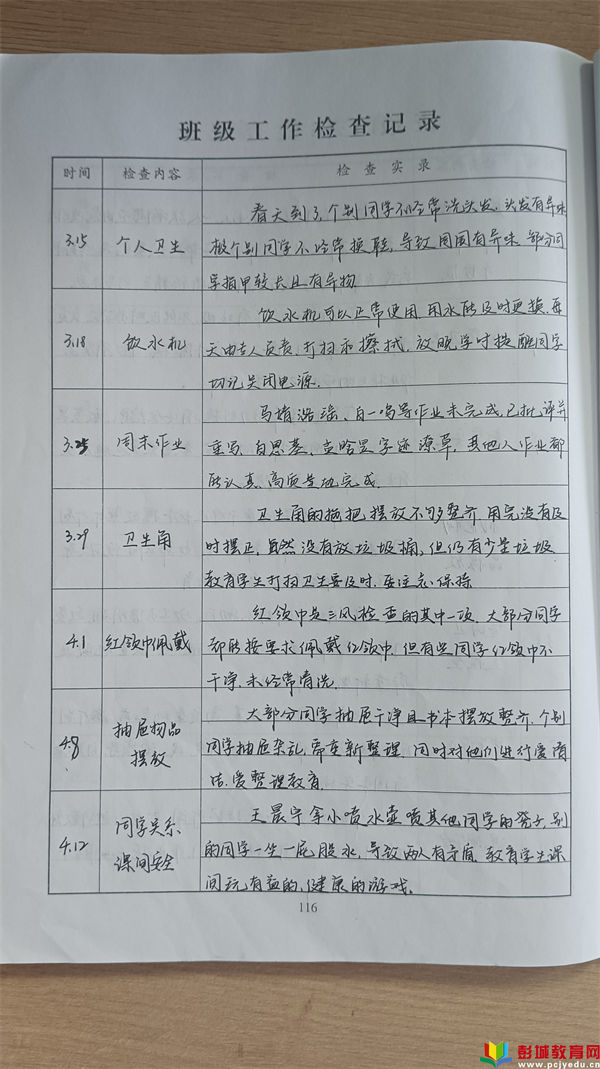 班级工作检查记录
时间 检查内容 检查实录
3.15 个人卫生
春天到了,个别同学不经常洗头发,头发有异味
极个别同学不经常换鞋,导致周围有异味,部分同
学指甲较长且有异物.
3.18 饮水机
饮水机可以正常使用,用水能及时更换,每
天由专人负责,打扫和擦拭,放晚学时提醒同学
切记关闭电源.
3.25 周末作业
未完成,已批评并
重写, 是字迹潦草,其他人作业都
能认真、高质量地完成.
3.29 卫生角
卫生角的拖把摆放不够整齐,用完没有及
时摆正,虽然没有放垃圾桶,但仍有少量垃圾
教育学生打扫卫生要及时,要注意保持
4.1 红领巾佩戴
红领巾是三风检查的其中一项,大部分同学
都能按要求佩戴红领巾,但有些同学红领巾不
干净,未经常清洗.
4.8 抽屉物品
摆放
大部分同学抽屉干净且书本摆放整齐,个别
同学抽屉杂乱,需重新整理,同时对他们进行爱清
洁、爱整理教育.
4.12 同学关系
课间安全
王晨宇拿小喷水壶喷其他同学的凳子,别
的同学一坐一屁股水,导致两人有矛盾,教育学生课
间玩有益的、健康的游戏.
116
彭城教育网
www.pcjyedu.cn